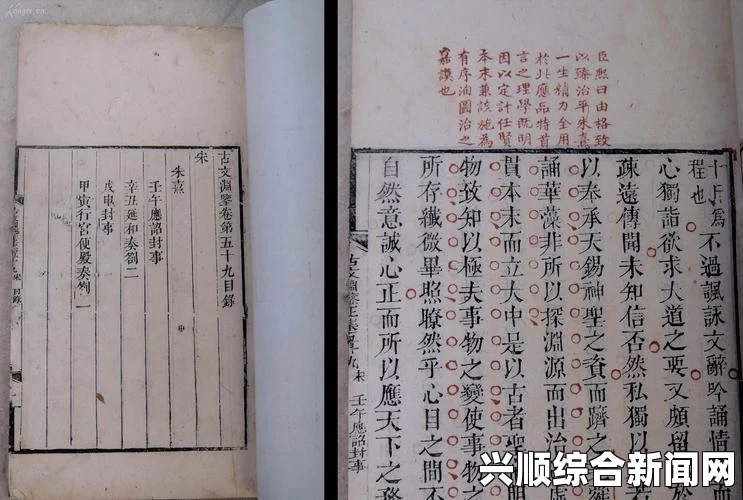 古文淵鑒卷第五十九目錄
宋
朱熹
壬午應詔封事
辛丑延和奏劄二
戊申封事
甲寅行宮便殿奏劄一
臣熙曰由格致
以臻治平朱熹
一生精力全用
於此應品特首
言之理學旣明
因以定計任賢
本末兼該施為
有序洵圖治之
嘉謨也
程也
不過諷詠文辭吟誦情
心獨詣欲求大道之要又頗留
疎遠傳聞未知信否然私獨以
以奉承天錫神聖之資而躋之
誦華藻非所以探淵源而出治
貫本末而立大中是以古者聖
物致知以極夫事物之變使事物之
所存纖微畢照瞭然乎心目之間不
自然意誠心正而所以應天下之務
宋 壬午應詔封事
兴顺综合新闻网